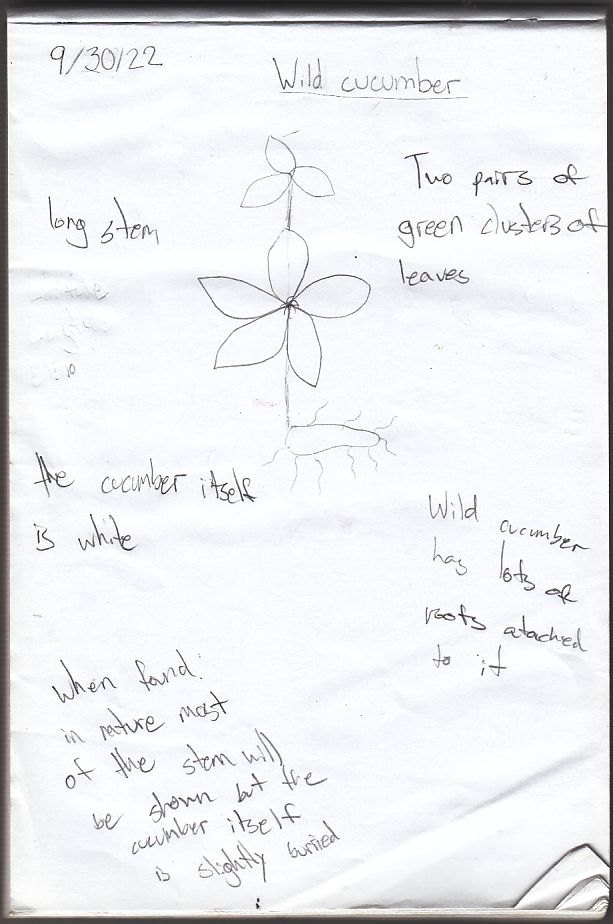 9/30/22
Wild cucumber
Two pairs of
green clusters of
leaves
long stem
the cucumber itself
is white
Wild cucumber
has lots of
roots atached
to it
When found:
in nature most
of the stem will
be shown but the
cucumber itself
is slightly burried